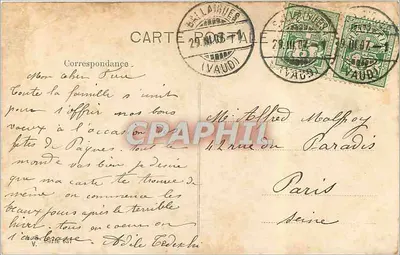 CARTE POSTALE
BALLAIGUES
29.III.07.-1
(VAUD)
BALLAIGUES
29.III.07.-1
(VAUD)
29.III.07.-1
(VAUD)
Correspondance.
Mon cher
Toute la famille s'unit
pour t'offrir nos bons
vœux à l'occasion
fêtes de Pâques. Tout
monde va bien je désire
que ma carte te trouve de
même on commence les
beaux jours après le terrible
hiver tous en cœur on
t'embrasse. Adèle
M. Alfred Malfroy
rue du Paradis
Paris
Seine
CPAPHIL